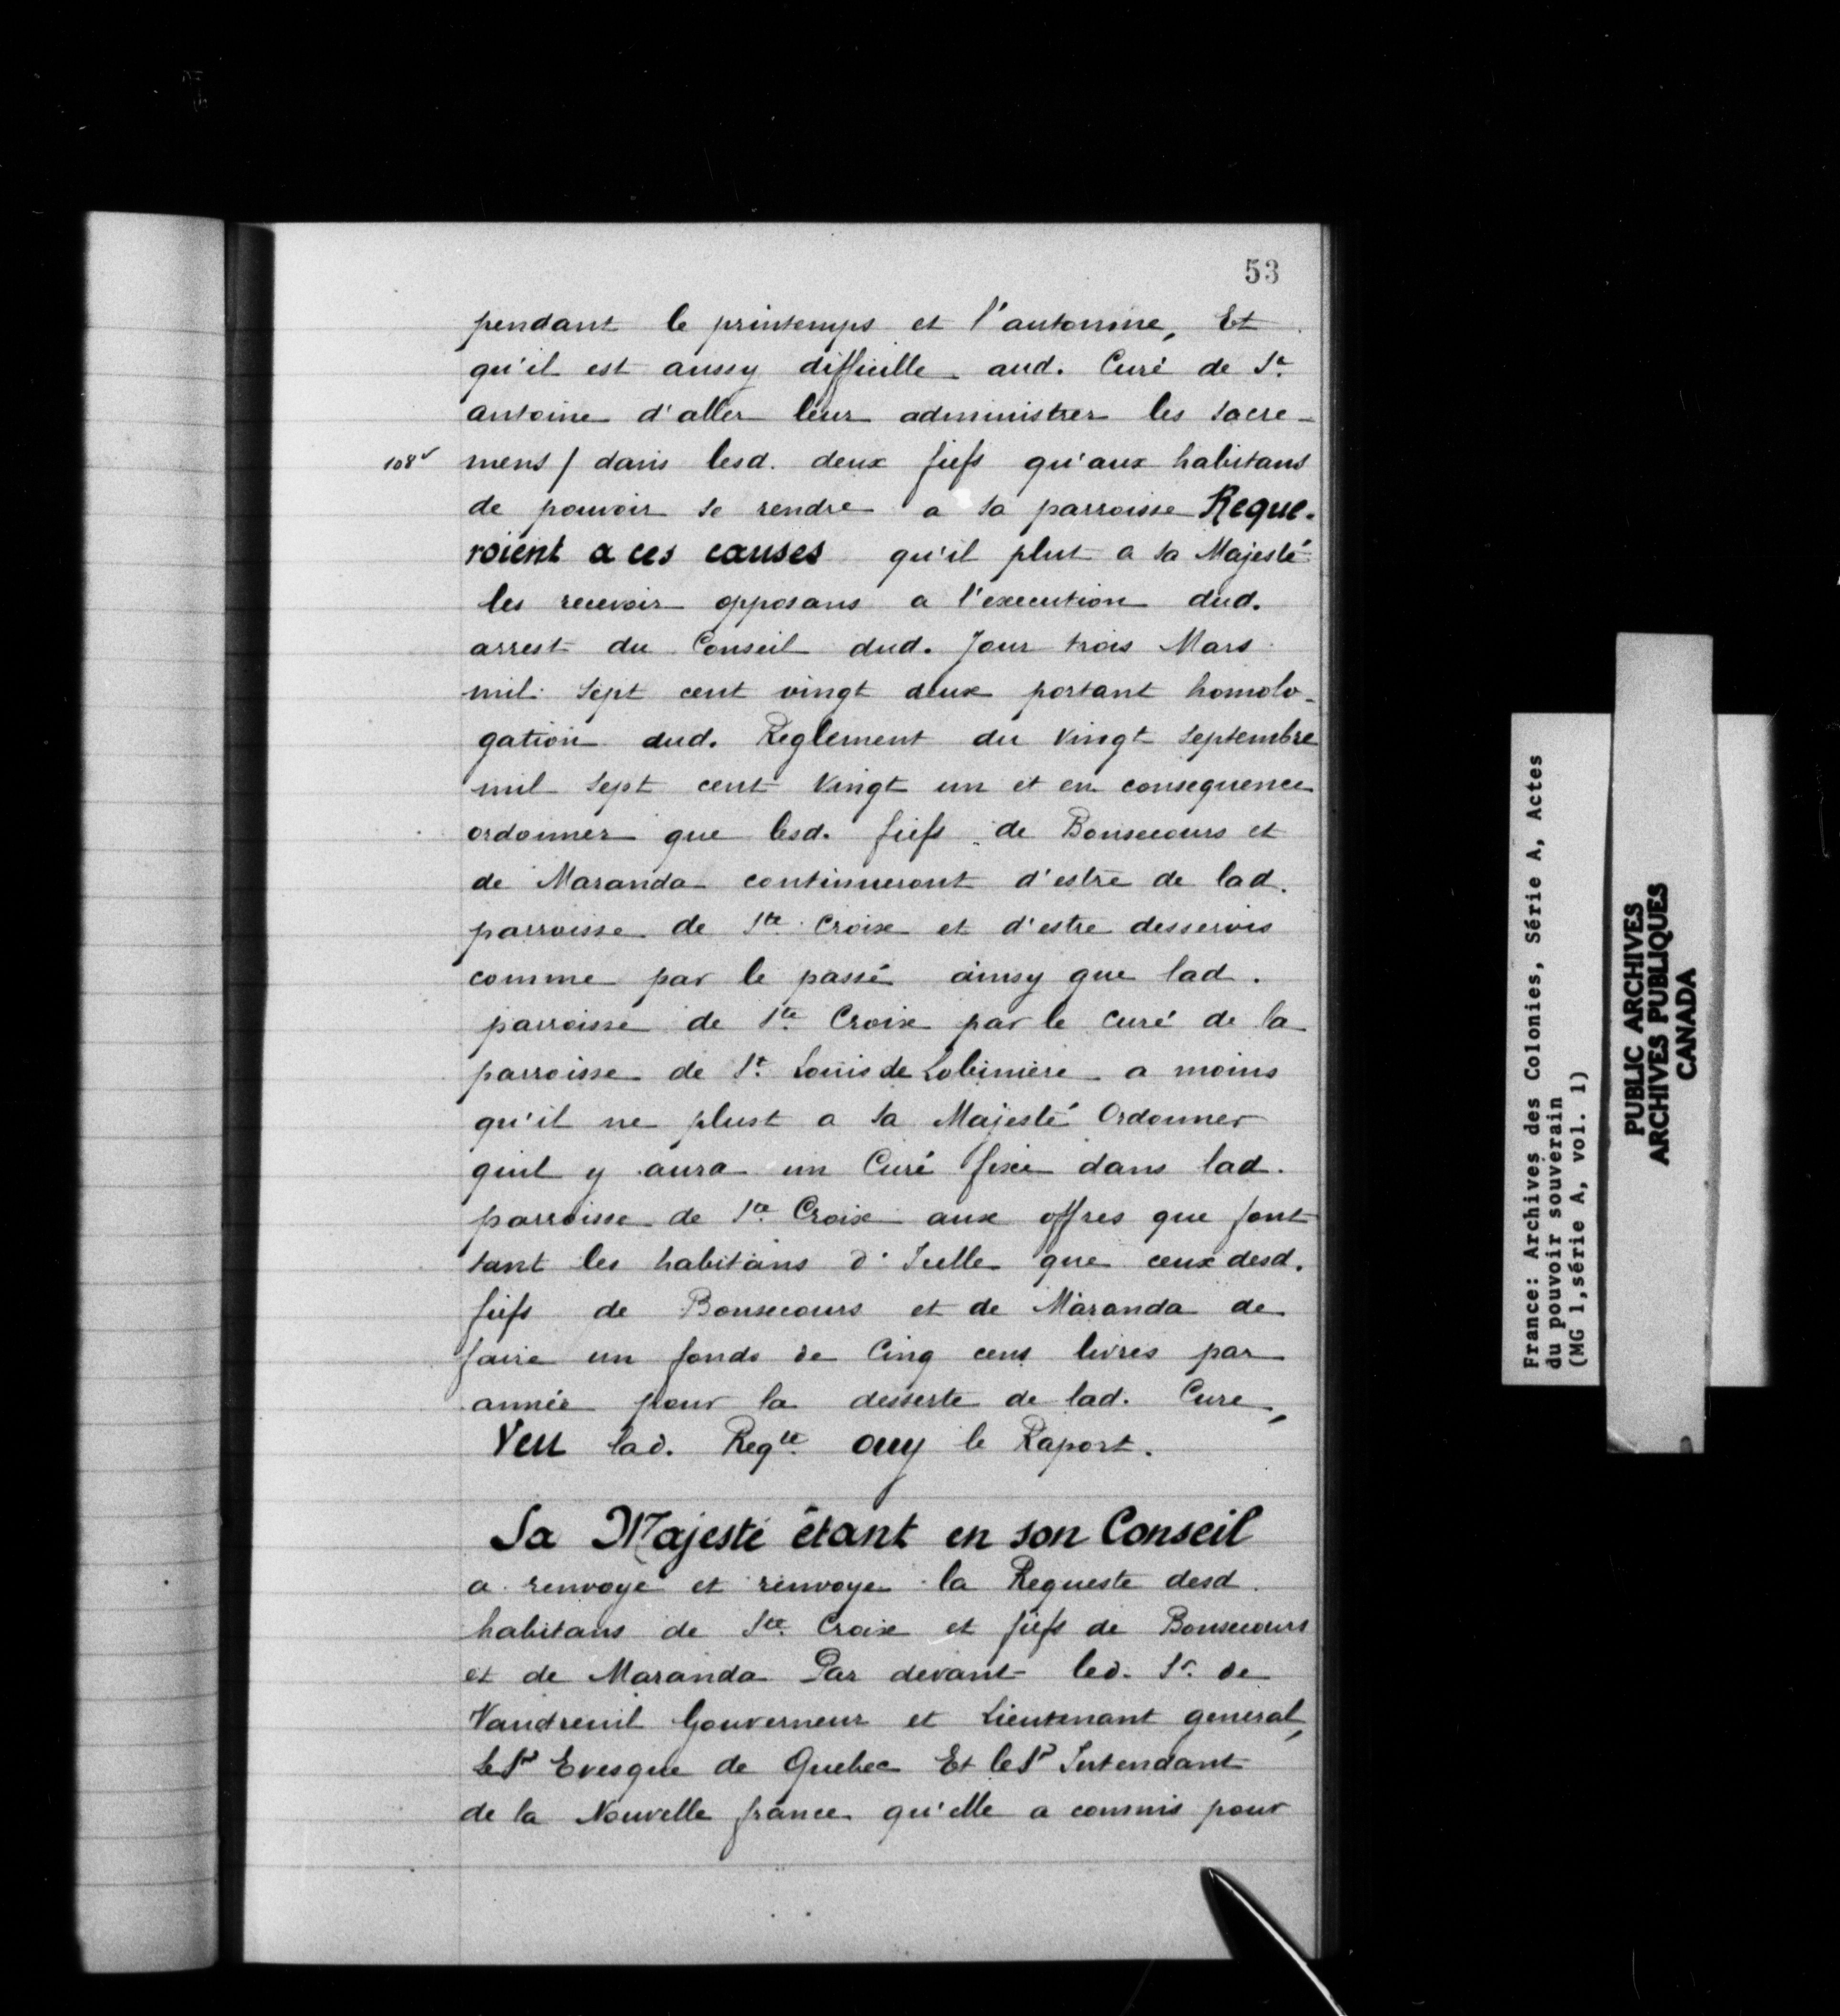 53
pendant le printemps et l'automne, Et
qu'il est aussy difficille aud. Curé de St.
antoine d'aller leur administrer les sacre-
108v mens / dans lesd. deux fiefs qu'aux habitans
de pouvoir se rendre a sa parroisse Reque-
roient a ces causes qu'il plut a sa Majesté
les recevoir opposans a l'execution dud.
arrest du Conseil dud. Jour trois Mars
mil sept cent vingt deux portant homolo-
gation dud. Reglement du vingt septembre
mil sept cent vingt un et en consequence
ordonner que lesd. fiefs de Bonsecours et
de Maranda continueront d'estre de lad.
parroisse de Ste. Croix et d'estre desservis
comme par le passé ainsy que lad.
parroisse de Ste. Croix par le curé de la
parroisse de St. Louis de Lobiniere a moins
qu'il ne plust a sa Majesté Ordonner
quil y aura un Curé fixe dans lad.
parroisse de Ste. Croix aux offres que font
tant les habitans d'Icelle que ceux desd.
fiefs de Bonsecours et de Maranda de
faire un fonds de Cinq cens livres par
année pour la desserte de lad. Cure,
Veu lad. Reqte. ouy le Raport.
Sa Majesté étant en son Conseil
a renvoyé et renvoye la Requeste desd.
habitans de Ste. Croix et fiefs de Bonsecours
et de Maranda Par devant led. Sr. de
Vaudreuil Gouverneur et Lieutenant general,
Le Sr Evesque de Quebec Et le Sr Intendant
de la Nouvelle france qu'elle a commis pour
France: Archives des Colonies, Série A, Actes
du pouvoir souverain
(MG 1,série A, vol. 1)
PUBLIC ARCHIVES
ARCHIVES PUBLIQUES
CANADA